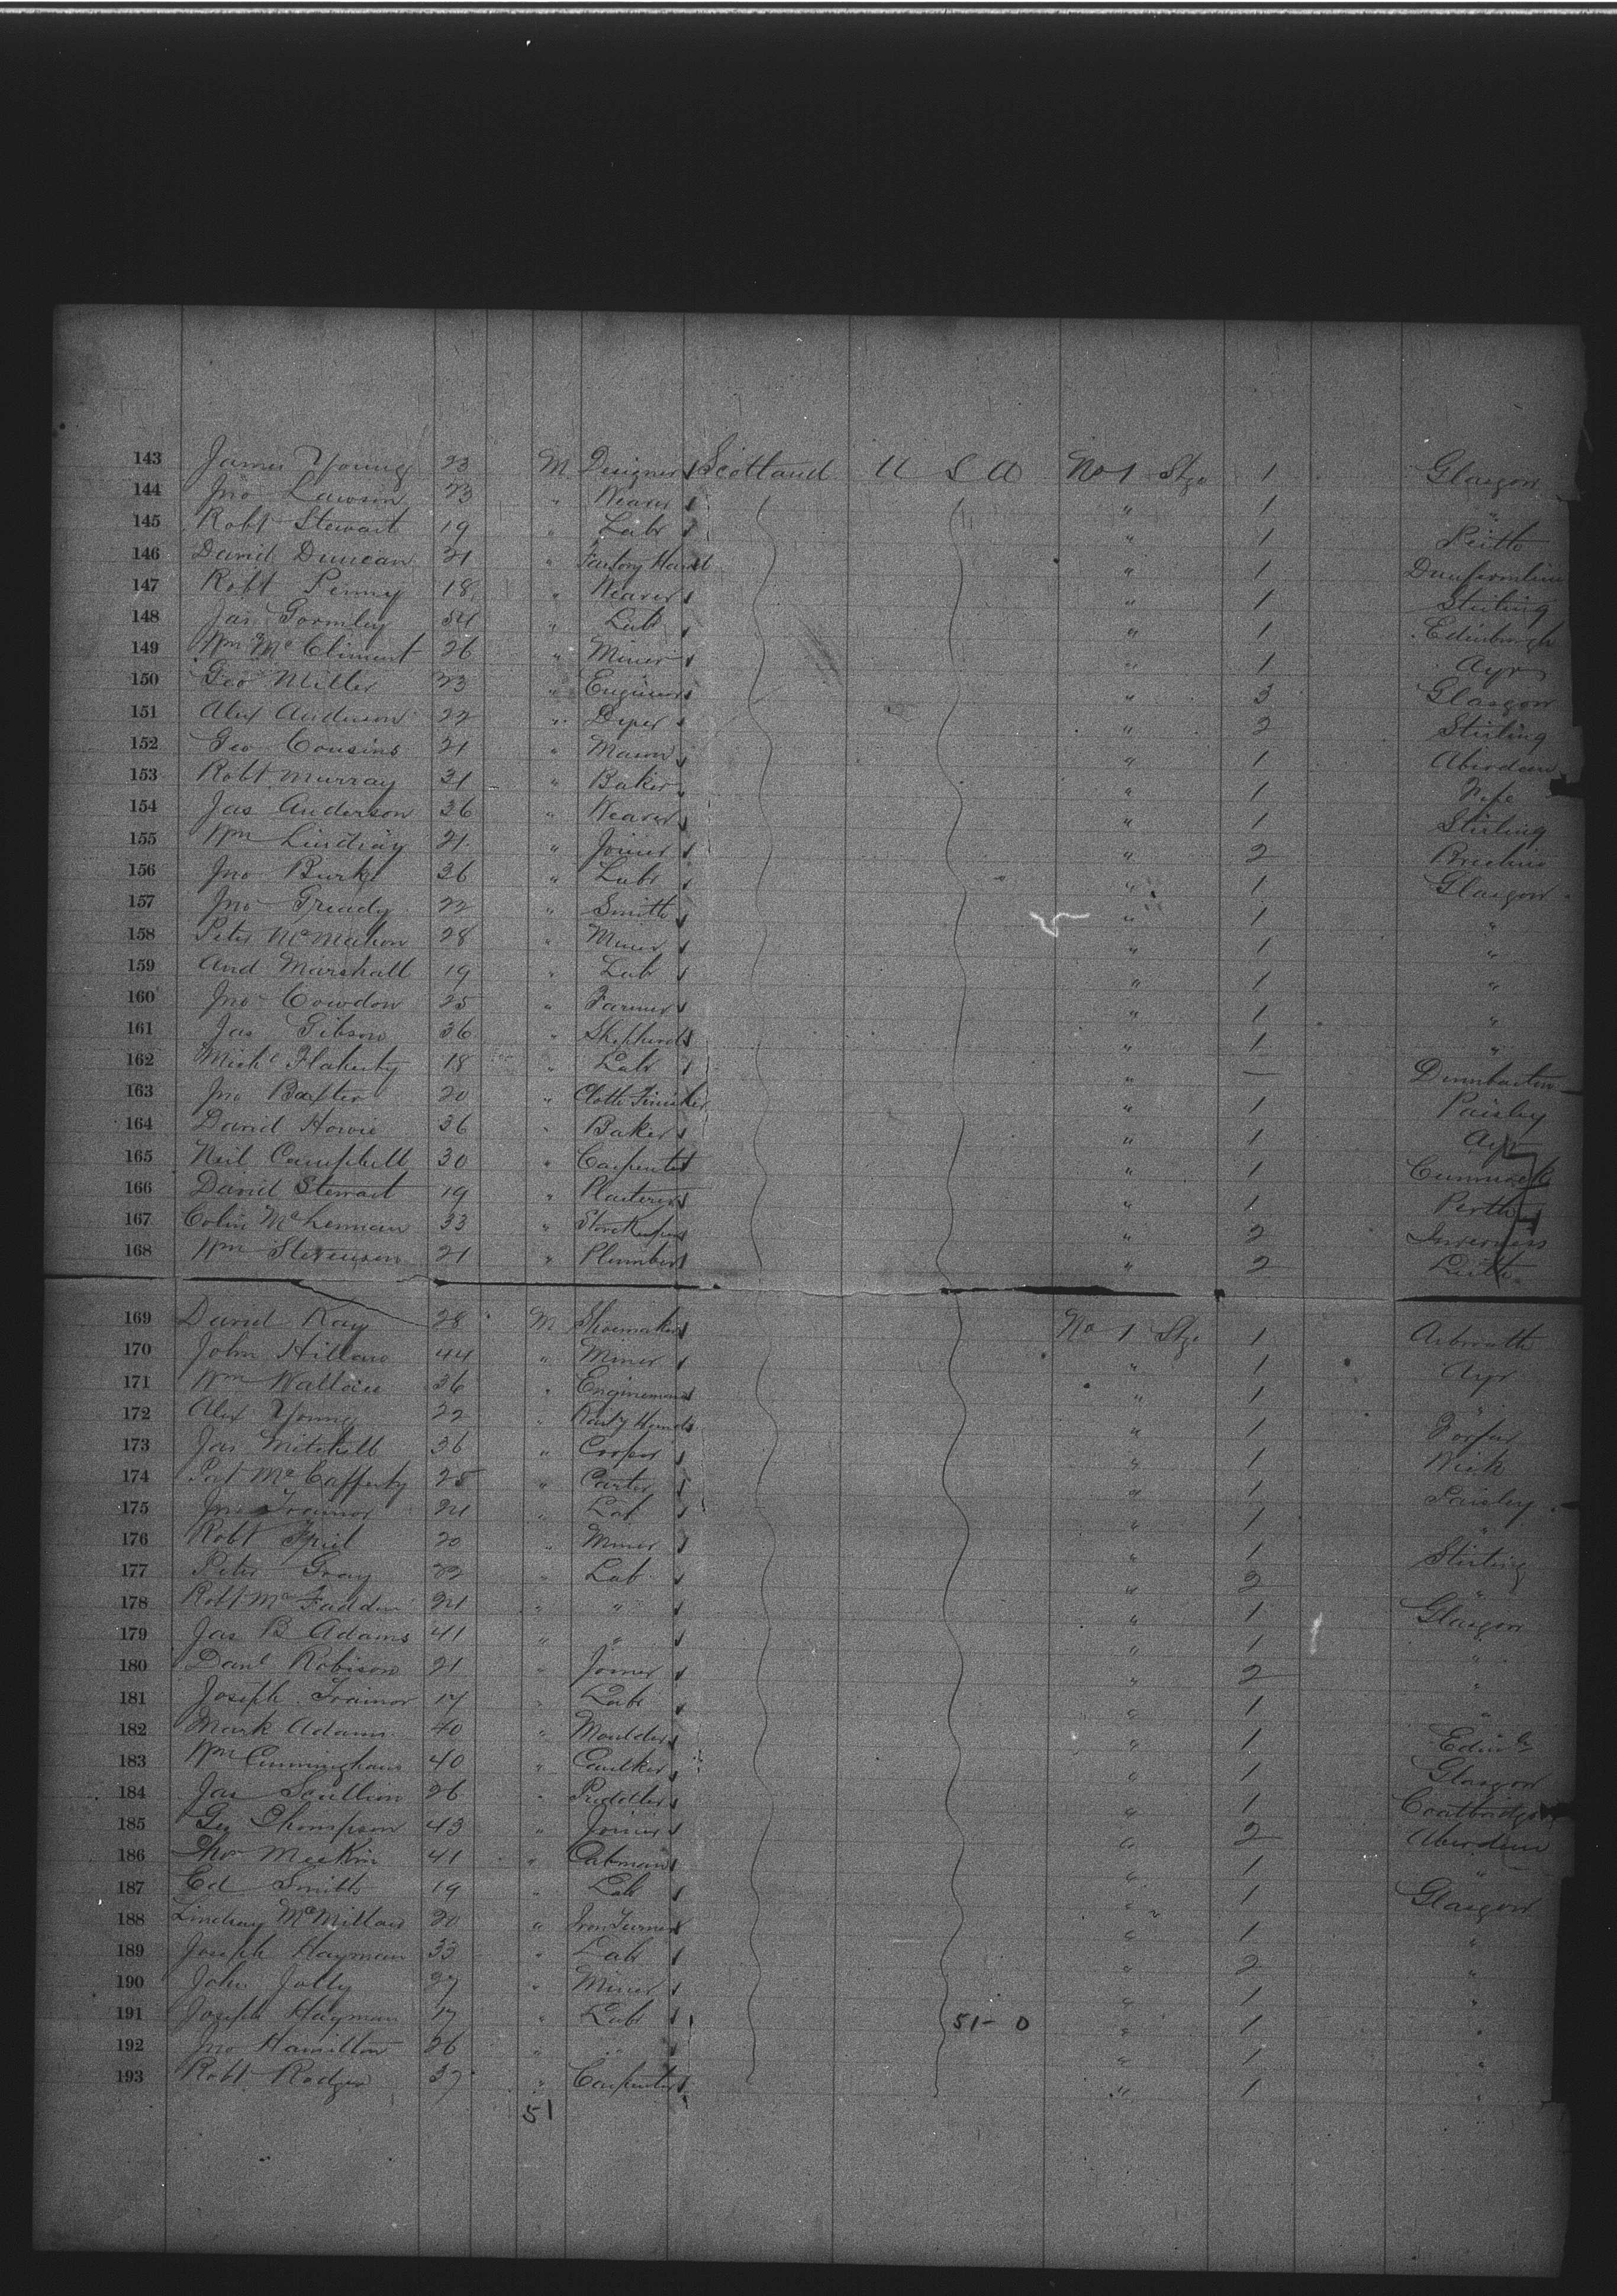 143 James Young 23 M Designer Scotland U S A No 1 Stge 1 Glasgow
144 Jno Lawson 23 " Weaver " 1 "
145 Robt Stewart 19 " Labr " 1 Leith
146 David Duncan 21 " Factory Hand " 1 Dunfermline
147 Robt Penny 18 " Weaver " 1 Stirling
148 Jas Gormley 34 " Labr " 1 Edinburgh
149 Wm McCliment 26 " Miner " 1 Ayr
150 Geo Miller 23 " Engineer " 3 Glasgow
151 Alex Anderson 22 " " 2 Stirling
152 Geo Cousins 21 " Mason " 1 Aberdeen
153 Robt Murray 31 " Baker " 1 Fife
154 Jas Anderson 36 " Weaver " 1 Stirling
155 Wm Lindsay 21 " Joiner " 2 Brechin
156 Jno Burke 36 " Labr " 1 Glasgow
157 Jno 22 " Smith " 1 "
158 Peter McMahon 28 " Miner " 1 "
159 And Marshall 19 " Labr " 1 "
160 Jno Cowdon 25 " Farmer " 1 "
161 Jas Gibson 36 " Shepherd " 1 "
162 Michl Flaherty 18 " Labr " — Dumbarton
163 Jno Baxter 20 " Cloth Finisher " 1 Paisley
164 David Howie 36 " Baker " 1 Ayr
165 Neil Campbell 30 " Carpenter " 1 Cumnock
166 David Stewart 19 " Plasterer " 1 Perth
167 Colin McLennan 33 " Storekeeper " 2 Inverness
168 Wm Stevenson 21 " Plumber " 2 Leith
169 David Kay 28 M Shoemaker No 1 Stge 1 Arbroath
170 John 44 " Miner " 1 Ayr
171 Wm Wallace 36 " Engineman " 1 "
172 Alex Young 22 " " 1 Forfar
173 Jas Mitchell 36 " Cooper " 1 Wick
174 Pat McCafferty 25 " Carter " 1 Paisley
175 Jno Trainor 21 " Lab " 1 "
176 Robt 20 " Miner " 1 Stirling
177 Peter Gray 22 " Lab " 2 "
178 Robt McFadden 21 " " " 1 Glasgow
179 Jas B Adams 41 " " " 1 "
180 Danl Robison 21 " Joiner " 2 "
181 Joseph Trainor 17 " Labr " 1 "
182 Mark Adams 40 " Moulder " 1 Edinbg
183 Wm Cunningham 40 " Caulker " 1 Glasgow
184 Jas Scullion 26 " Puddler " 1 Coatbridge
185 Geo Thompson 43 " Joiner " 2 Aberdeen
186 Thos Meekin 41 " Cabman " 1 "
187 Ed Smith 19 " Lab " 1 Glasgow
188 Lindsay McMillan 20 " Iron Turner " 1 "
189 Joseph Hayman 33 " Lab " 2 "
190 John Jolly 27 " Miner " 1 "
191 Joseph Hayman 17 " Labr 51-0 " 1 "
192 Jno Hamilton 26 " " " 1 "
193 Robt Rodger 37 " Carpenter " 1 "
51